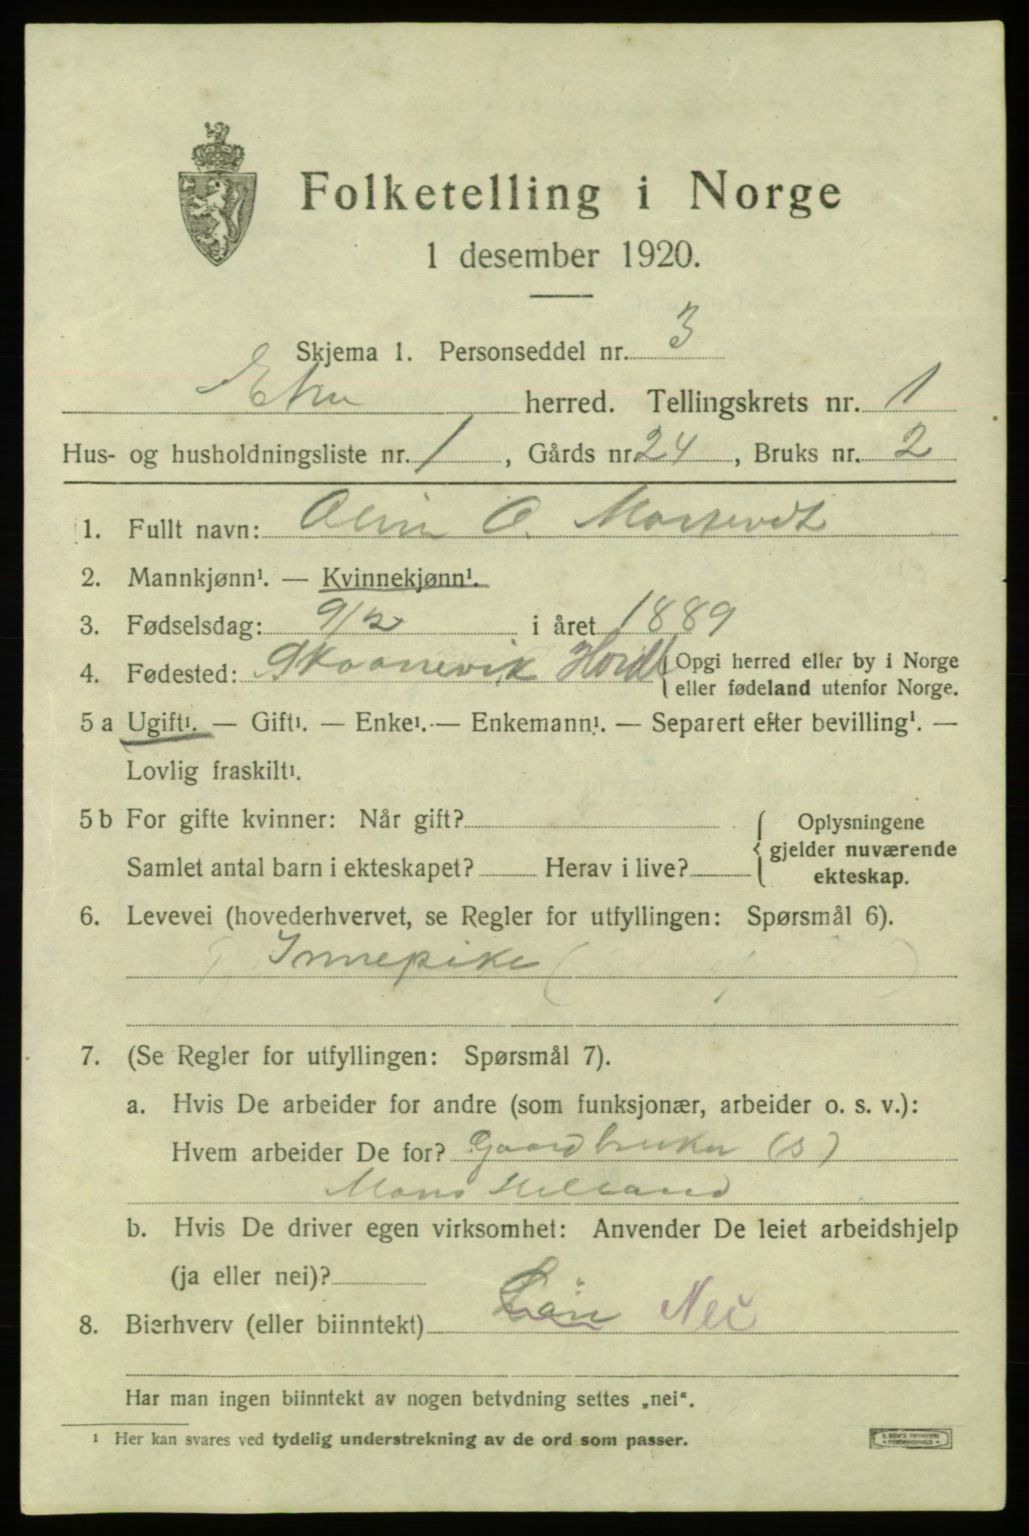 Folketelling i Norge
1 desember 1920.
Skjema 1. Personseddel nr. 3
Etne herred. Tellingskrets nr. 1
Hus- og husholdningsliste nr. 1, Gårds nr. 24, Bruks nr. 2
1. Fullt navn: O.
2. Mannkjønn¹. — Kvinnekjønn¹.
3. Fødselsdag: 9/2 i året 1889
4. Fødested: Skaanevik Hordl. { Opgi herred eller by i Norge
eller fødeland utenfor Norge.
5 a Ugift¹. — Gift¹. — Enke¹. — Enkemann¹. — Separert efter bevilling¹. —
Lovlig fraskilt¹.
5 b For gifte kvinner: Når gift?
Oplysningene
gjelder nuværende
ekteskap.
Samlet antal barn i ekteskapet? Herav i live?
6. Levevei (hovederhvervet, se Regler for utfyllingen: Spørsmål 6).
Innepike
7. (Se Regler for utfyllingen: Spørsmål 7).
a. Hvis De arbeider for andre (som funksjonær, arbeider o. s. v.):
Hvem arbeider De for? Gaardbruker (s)
Mons Helland
b. Hvis De driver egen virksomhet: Anvender De leiet arbeidshjelp
(ja eller nei)?
8. Bierhverv (eller biinntekt) Løn Nei
Har man ingen biinntekt av nogen betydning settes „nei".
¹ Her kan svares ved tydelig understrekning av de ord som passer.